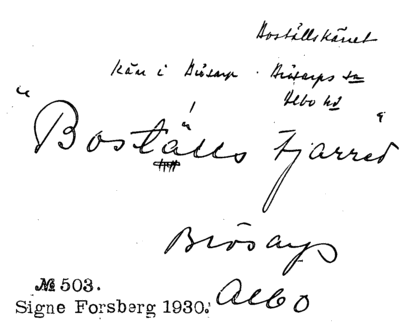 Boställskärret
kärr i Brösarp. Brösarps sn
Albo hd
"Boställs kjärred"
Brösarps
№ 503.
Signe Forsberg 1930. Albo